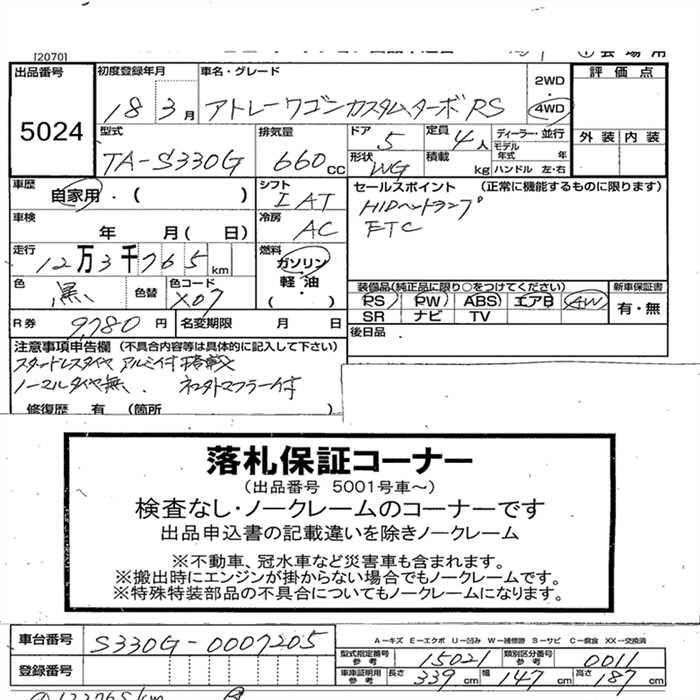 [2070]
会場用
出品番号
5024
初度登録年月
18 3 月
車名・グレード
アトレーワゴンカスタムターボRS
2WD
4WD
評価点
外装 内装
型式
TA-S330G
排気量
660 CC
ドア 5
定員 4 人
形状 WG
積載 kg
ディーラー・並行
モデル年式 年
ハンドル 左・右
車歴
自家用・( )
シフト
I AT
セールスポイント (正常に機能するものに限ります)
HIDヘッドランプ
ETC
車検
年 月( 日)
冷房
AC
走行
12万3千765km
燃料
ガソリン・
軽・油
( )
色
黒
色替
色コード
X07
装備品(純正品に限り○をつけてください)
PS PW ABS エアB AW
SR ナビ TV
新車保証書
有・無
R券
9,780 円
名変期限 月 日
後日品
注意事項申告欄 (不具合内容等は具体的に記入して下さい)
スタードレスタイヤ アルミ付 搭載
ノーマルタイヤ無、
マフラー付
修復歴 有 (箇所 )
落札保証コーナー
(出品番号 5001号車~)
検査なし・ノークレームのコーナーです
出品申込書の記載違いを除きノークレーム
※不動車、冠水車など災害車も含まれます。
※搬出時にエンジンが掛からない場合でもノークレームです。
※特殊特装部品の不具合についてもノークレームになります。
車台番号
S330G-0007205
登録番号
A-キズ E-エクボ U-凹み W-補修跡 S-サビ C-腐食 XX-交換済
型式指定番号 参考 15021
類別区分番号 参考 0011
車庫証明用 参考 長さ 339 cm 幅 147 cm 高さ 187 cm
① 123765km